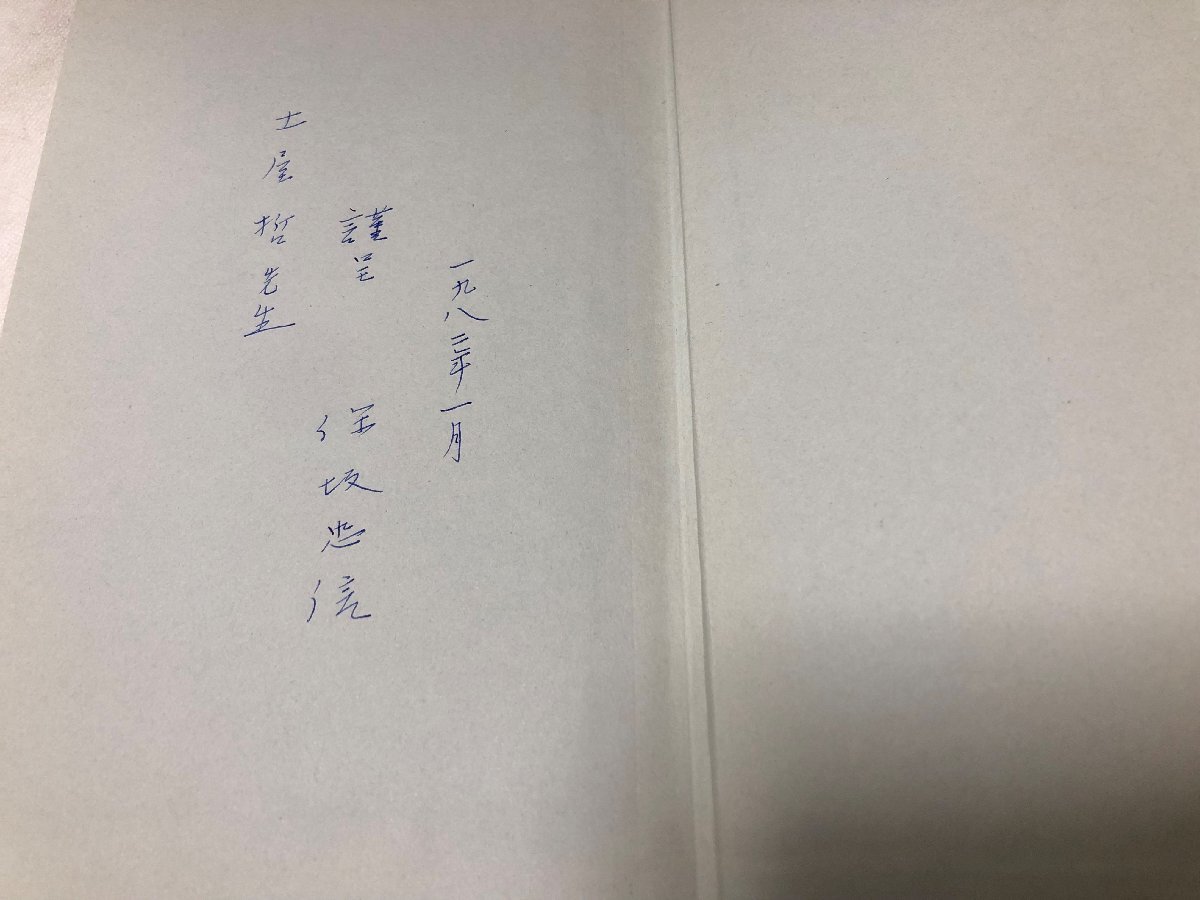 一九八二年一月
謹呈 保坂忠信
土屋哲先生